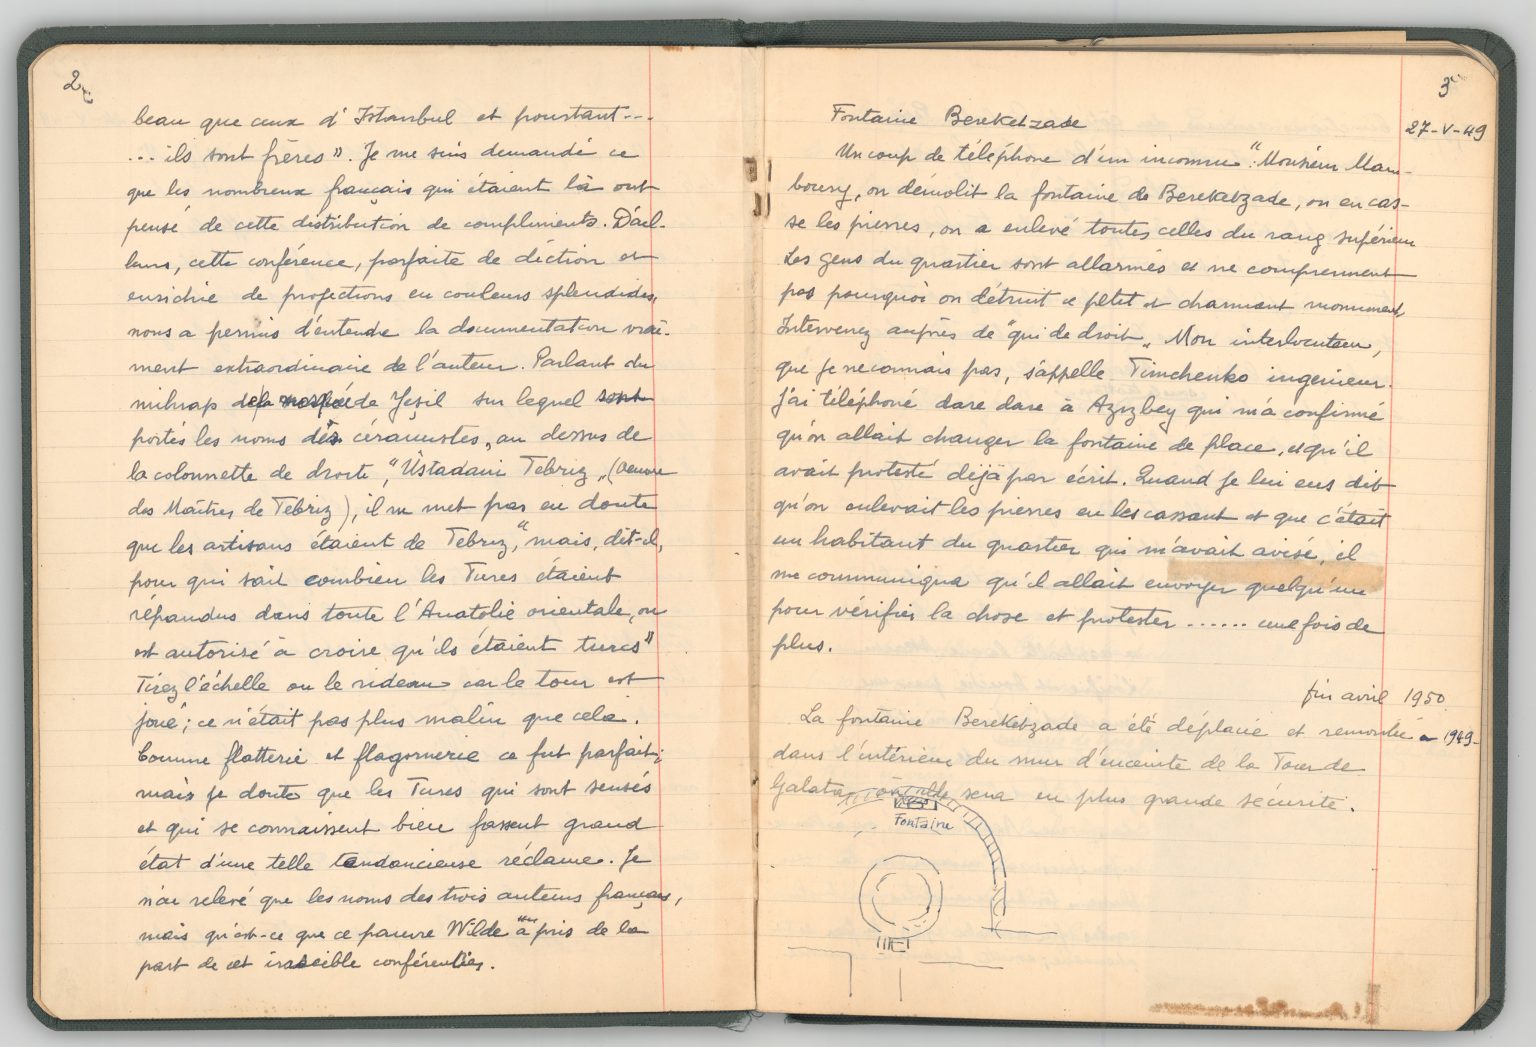 2
beau que ceux d'Istanbul et pourtant...
... ils sont frères". Je me suis demandé ce
que les nombreux français qui étaient là ont
pensé de cette distribution de compliments. D'ail-
leurs, cette conférence, parfaite de diction et
enrichie de projections en couleurs splendides,
nous a permis d'entendre la documentation vrai-
ment extraordinaire de l'auteur. Parlant du
mihrap de Jeşil sur lequel sont
portés les noms des céramistes, au dessus de
la colonnette de droite, "Üstadani Tebriz" (Oeuvre
des Maîtres de Tebriz), il ne met pas en doute
que les artisans étaient de Tebriz, "mais, dit-il,
pour qui sait combien les Turcs étaient
répandus dans toute l'Anatolie orientale, on
est autorisé à croire qu'ils étaient turcs"
Tirez l'échelle ou le rideau car le tour est
joué; ce n'était pas plus malin que cela.
Comme flatterie et flagornerie ce fut parfait;
mais je doute que les Turcs qui sont sensés
et qui se connaissent bien fassent grand
état d'une telle tendancieuse réclame. Je
n'ai relevé que les noms des trois auteurs français,
mais qu'est-ce que ce pauvre Wilde a pris de la
part de cet irascible conférencier.
3
Fontaine Bereketzade
27-V-49
Un coup de téléphone d'un inconnu: "Monsieur Mam-
boury, on démolit la fontaine de Bereketzade, on en cas-
se les pierres, on a enlevé toutes celles du rang supérieur
Les gens du quartier sont allarmés et ne comprennent
pas pourquoi on détruit ce petit et charmant monument
Intervenez auprès de "qui de droit" Mon interlocuteur,
que je ne connais pas, s'appelle Timchenko ingenieur.
J'ai téléphoné dare dare à Azizbey qui m'a confirmé
qu'on allait changer la fontaine de place, et qu'il
avait protesté déjà par écrit. Quand je lui eus dit
qu'on enlevait les pierres en les cassant et que c'était
un habitant du quartier qui m'avait avisé, il
me communiqua qu'il allait envoyer quelqu'un
pour vérifier la chose et protester ...... une fois de
plus.
fin avril 1950
La fontaine Bereketzade a été déplacée et remontée en 1949-
dans l'intérieur du mur d'enceinte de la Tour de
Galata où elle sera en plus grande sécurité.
Fontaine